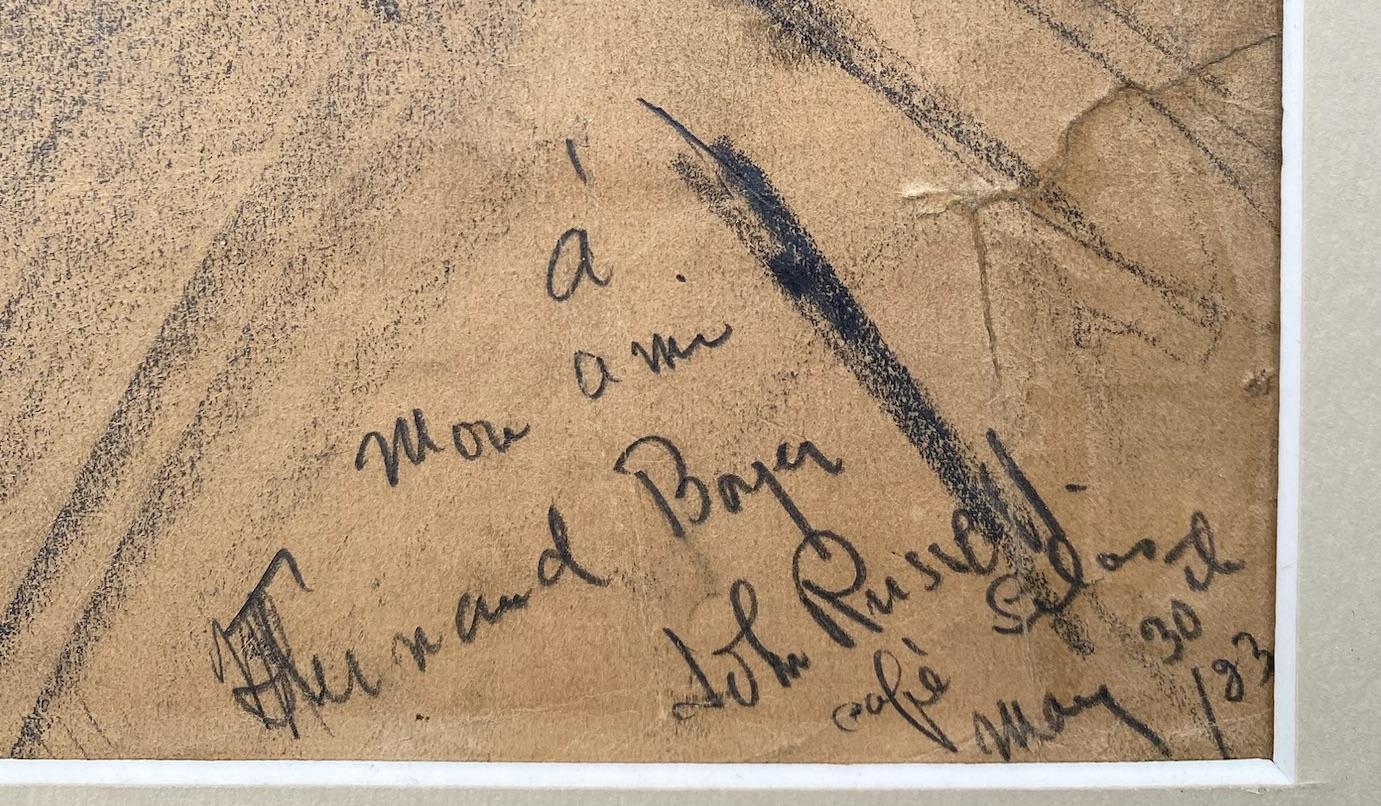 à
mon ami
Fernand Boyer
John Russell.
café
May 30th